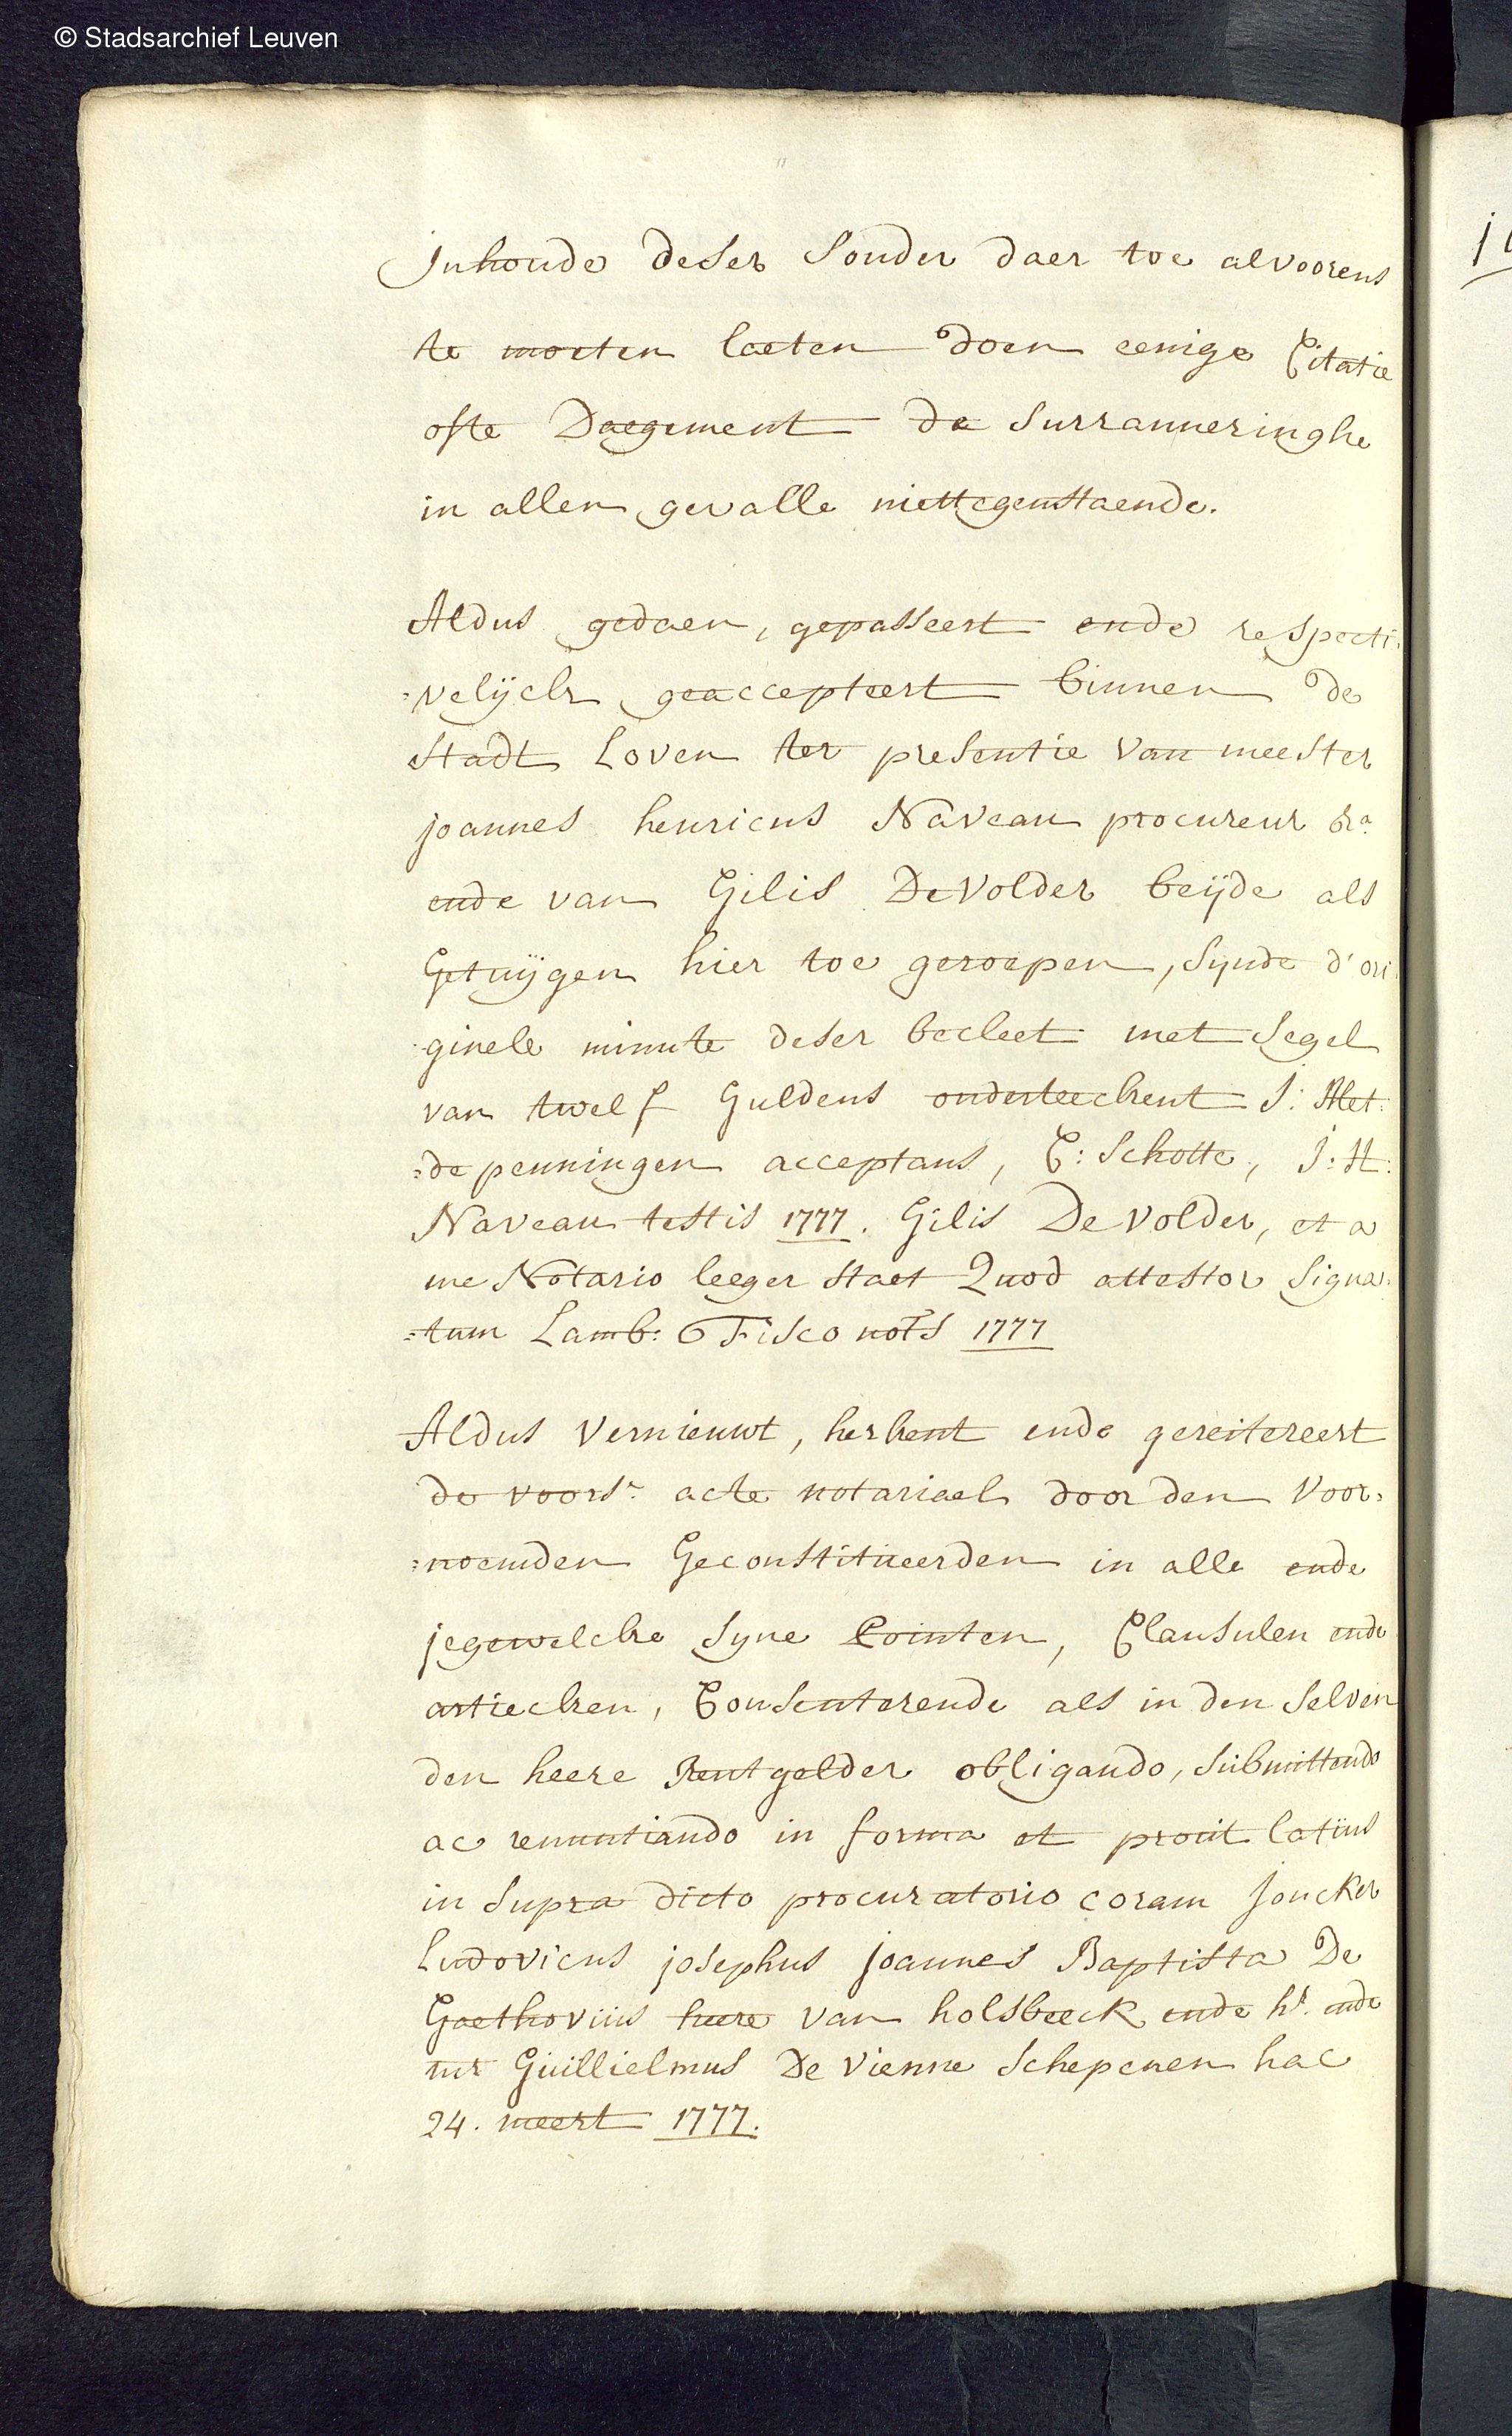 © Stadsarchief Leuven
Inhoude deser sonder daer toe alvoorens
te moeten laeten doen eenige Citatie
ofte Daegement de surranneringhe
in allen gevalle niettegenstaende.
Aldus gedaen, gepasseert ende respecti=
=velijck geaccepteert binnen de
stadt Loven ter presentie van meester
joannes henricus Naveau procureur &ra
ende van Gilis De Volder beijde als
Getuijgen hier toe geroepen, synde d'ori
ginele minute deser becleet met segel
van twelf Guldens onderteeckent J: Met=
=de penningen acceptans, C: Schotte, J: H:
Naveau testis 1777. Gilis De Volder, et a
me Notario leeger staet Quod attestor signa=
=tum Lamb: Fisco nots 1777
Aldus vernieuwt, herkent ende gereitereert
de voors. acte notariael door den voor=
=noemden Geconstitueerden in alle ende
jegewelcke syne Pointen, Clausulen ende
artieclen, Consenterende als in den selven
den heere Rentgelder obligando, submittendo
ac renuntiando in forma et prout latius
in supra dicto procuratorio coram Joncker
Ludovicus josephus joannes Baptista De
Gaethoviüs heere van holsbeeck ende hr. ende
mr Guillielmus De Vienne Schepenen hac
24. meert 1777.